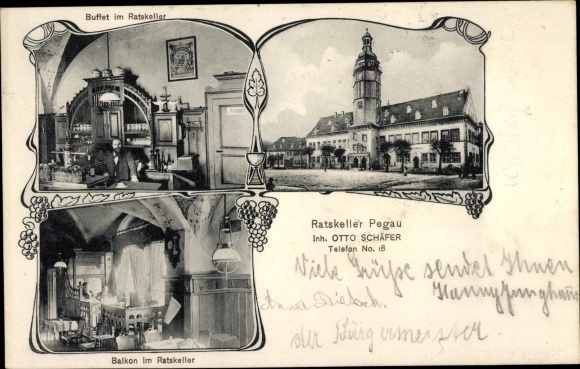 Buffet im Ratskeller
Ratskeller Pegau
Inh. OTTO SCHÄFER
Telefon No. 18
Viele Grüße sendet Ihnen
Hanny Junghanns
Anna Dietsch.
der Bürgermeister
Balkon im Ratskeller